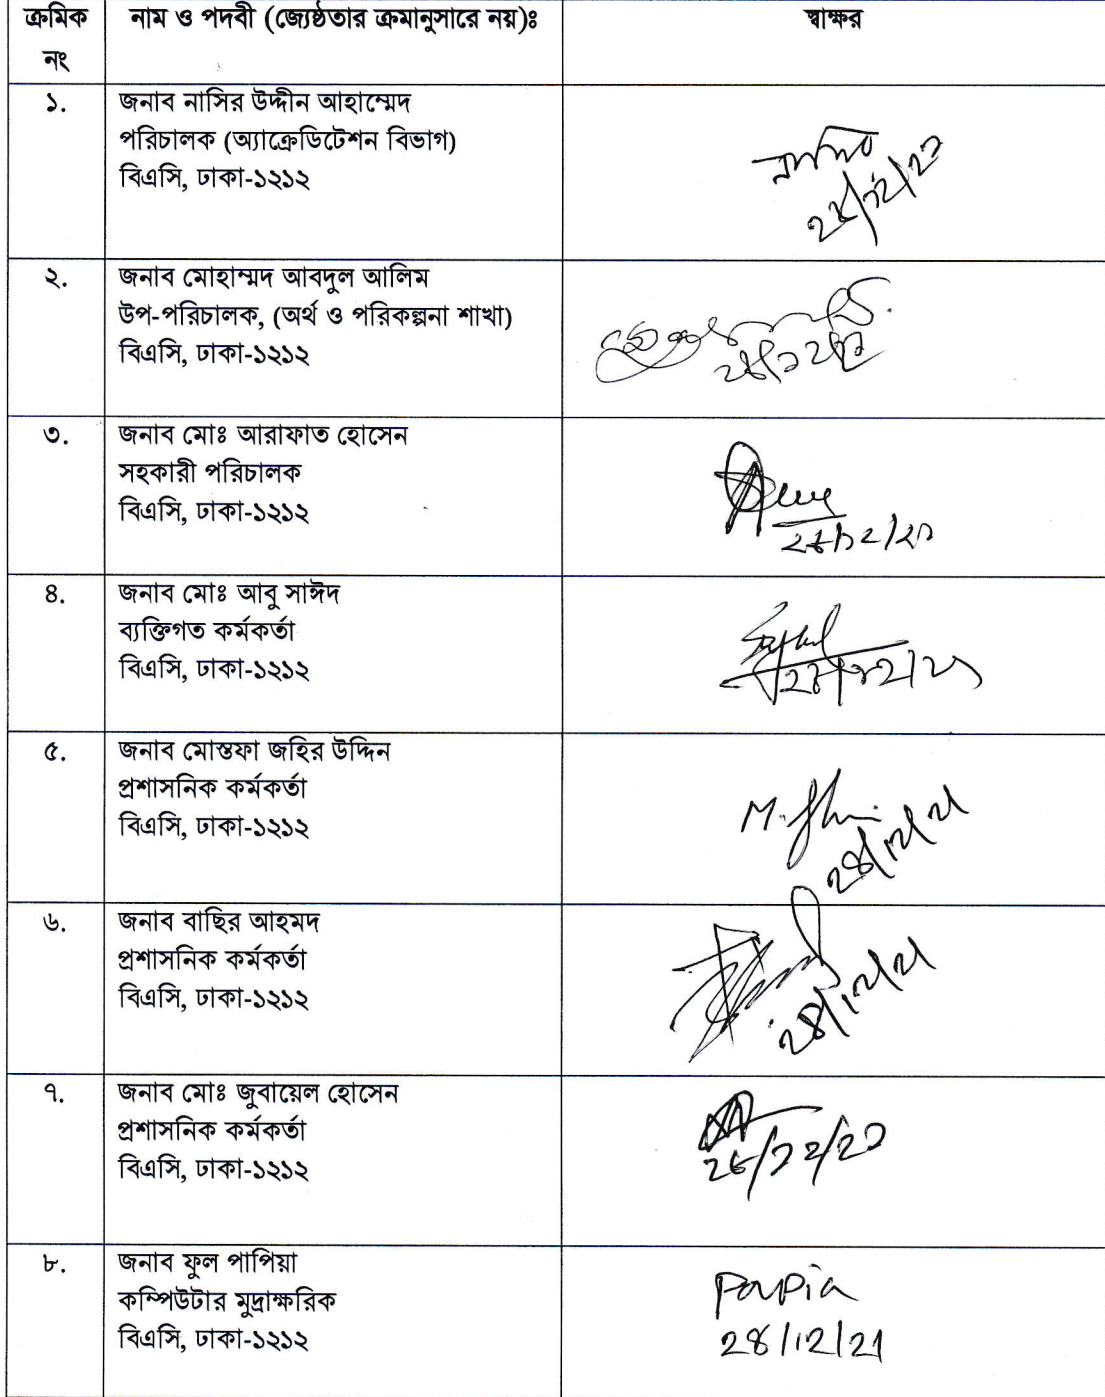 ক্রমিক নং
নাম ও পদবী (জ্যেষ্ঠতার ক্রমানুসারে নয়)ঃ
স্বাক্ষর
১.
জনাব নাসির উদ্দীন আহাম্মেদ
পরিচালক (অ্যাক্রেডিটেশন বিভাগ)
বিএসি, ঢাকা-১২১২
নাসির
২৮/১২/২১
২.
জনাব মোহাম্মদ আবদুল আলিম
উপ-পরিচালক, (অর্থ ও পরিকল্পনা শাখা)
বিএসি, ঢাকা-১২১২
৩.
জনাব মোঃ আরাফাত হোসেন
সহকারী পরিচালক
বিএসি, ঢাকা-১২১২
২৮/১২/২১
৪.
জনাব মোঃ আবু সাঈদ
ব্যক্তিগত কর্মকর্তা
বিএসি, ঢাকা-১২১২
২৮/১২/২১
৫.
জনাব মোস্তফা জহির উদ্দিন
প্রশাসনিক কর্মকর্তা
বিএসি, ঢাকা-১২১২
28/12/21
৬.
জনাব বাছির আহমদ
প্রশাসনিক কর্মকর্তা
বিএসি, ঢাকা-১২১২
28/12/21
৭.
জনাব মোঃ জুবায়েল হোসেন
প্রশাসনিক কর্মকর্তা
বিএসি, ঢাকা-১২১২
২৮/১২/২১
৮.
জনাব ফুল পাপিয়া
কম্পিউটার মুদ্রাক্ষরিক
বিএসি, ঢাকা-১২১২
Papia
28/12/21